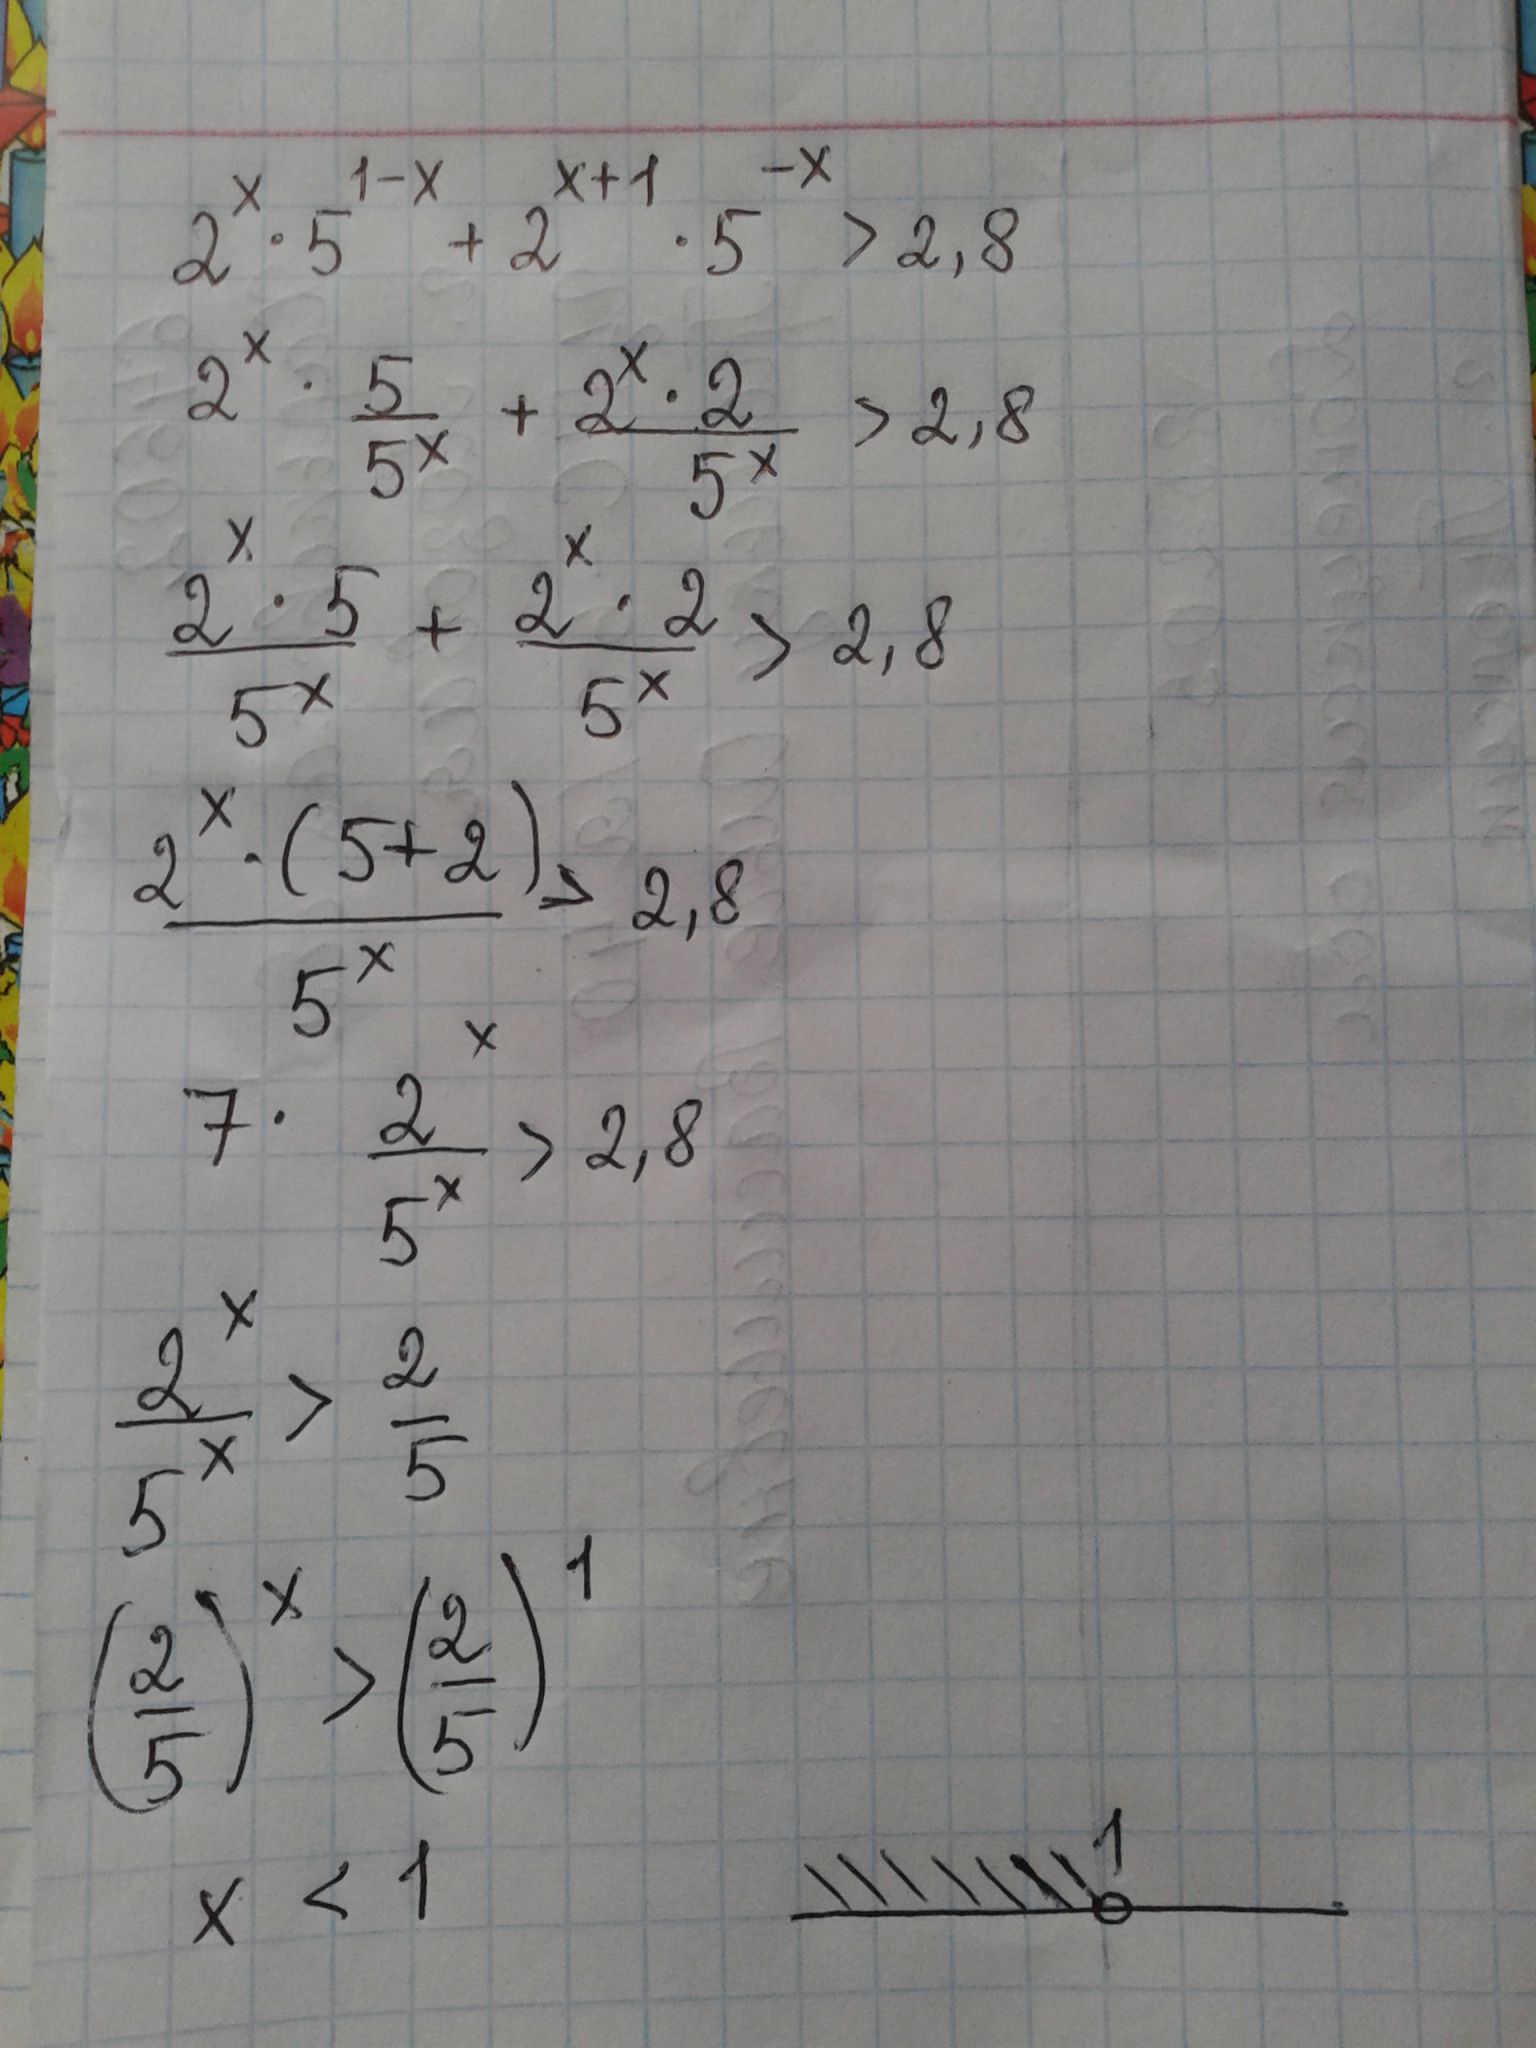 2^x · 5^(1-x) + 2^(x+1) · 5^(-x) > 2,8
2^x · 5/5^x + 2^x · 2/5^x > 2,8
2^x · 5/5^x + 2^x · 2/5^x > 2,8
2^x · (5+2)/5^x > 2,8
7 · 2^x/5^x > 2,8
2^x/5^x > 2/5
(2/5)^x > (2/5)^1
x < 1
1